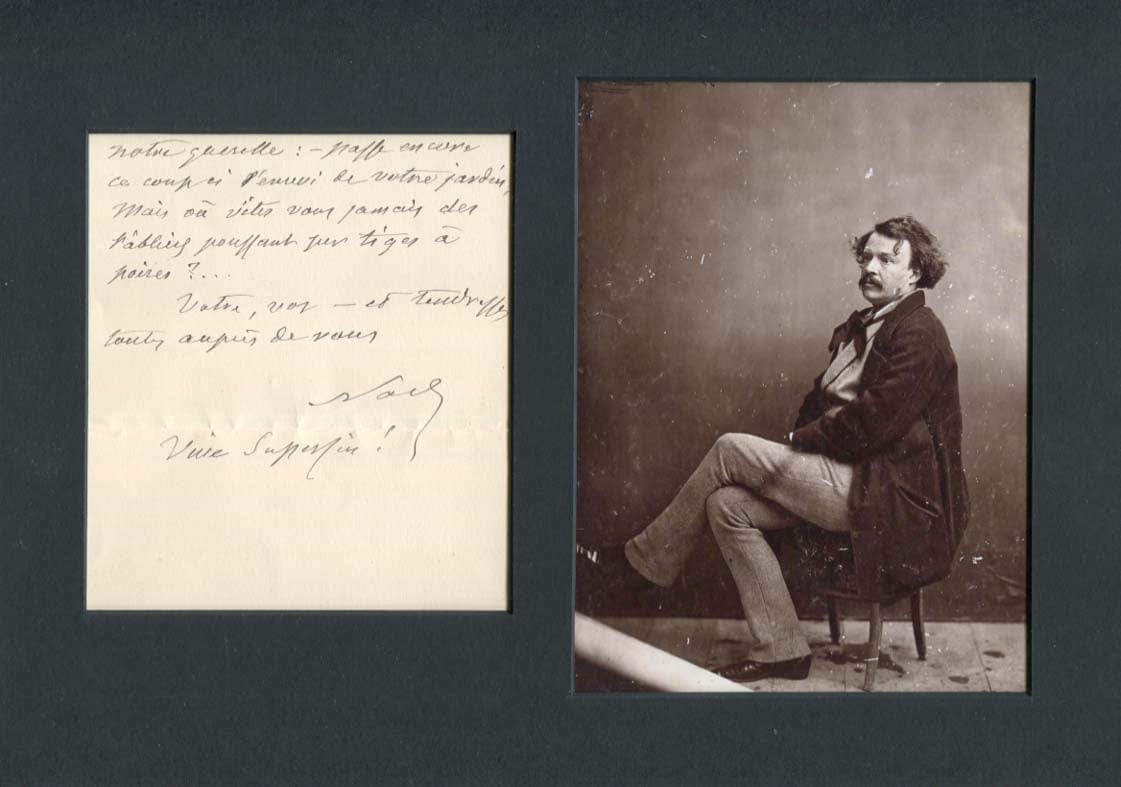 notre querelle : – passe encore
ce coup ci de votre jardin,
Mais où vites vous jamais des
poussant sur tiges à
poires ?...
Votre, vos – et tendresses
toutes auprès de vous
Nadar
Vive Superfin !